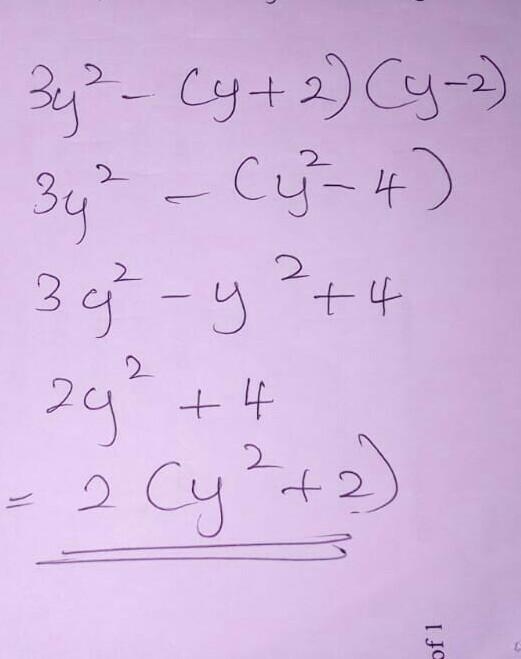 3y² - (y+2)(y-2)
3y² - (y²-4)
3y² - y²+4
2y² + 4
= 2(y²+2)
of 1